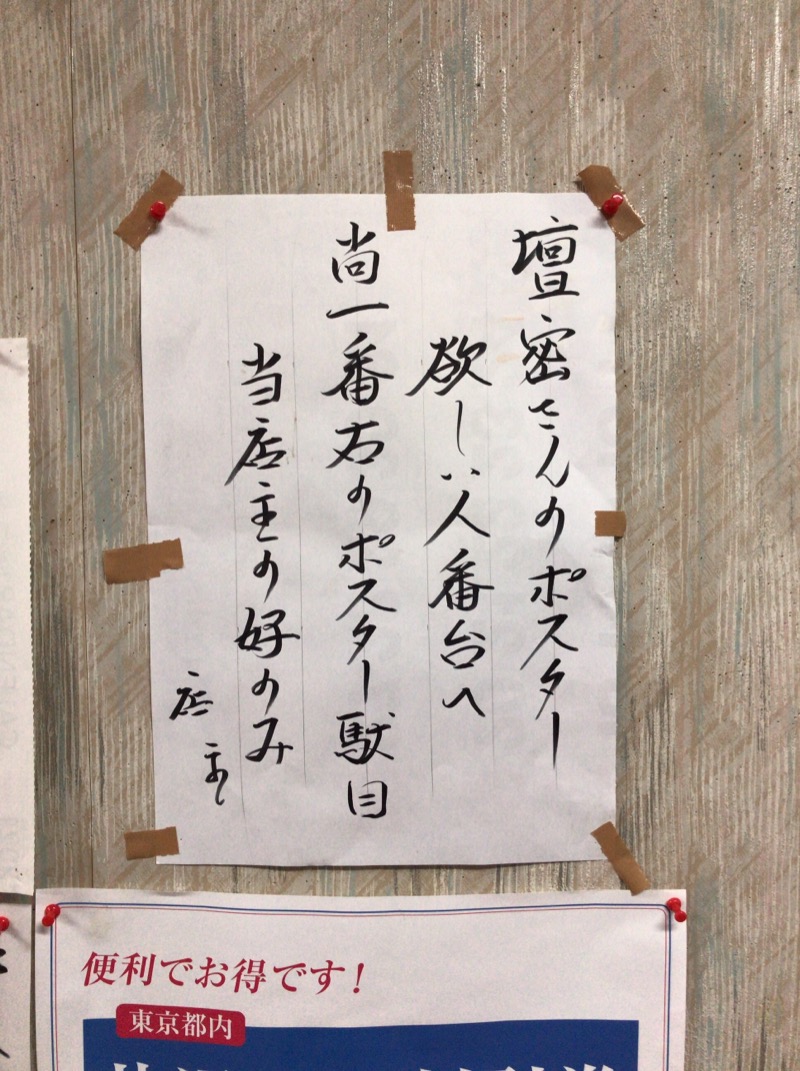 壇密さんのポスター
欲しい人番台へ
尚一番右のポスター駄目
当店主の好のみ
店主
便利でお得です!
東京都内